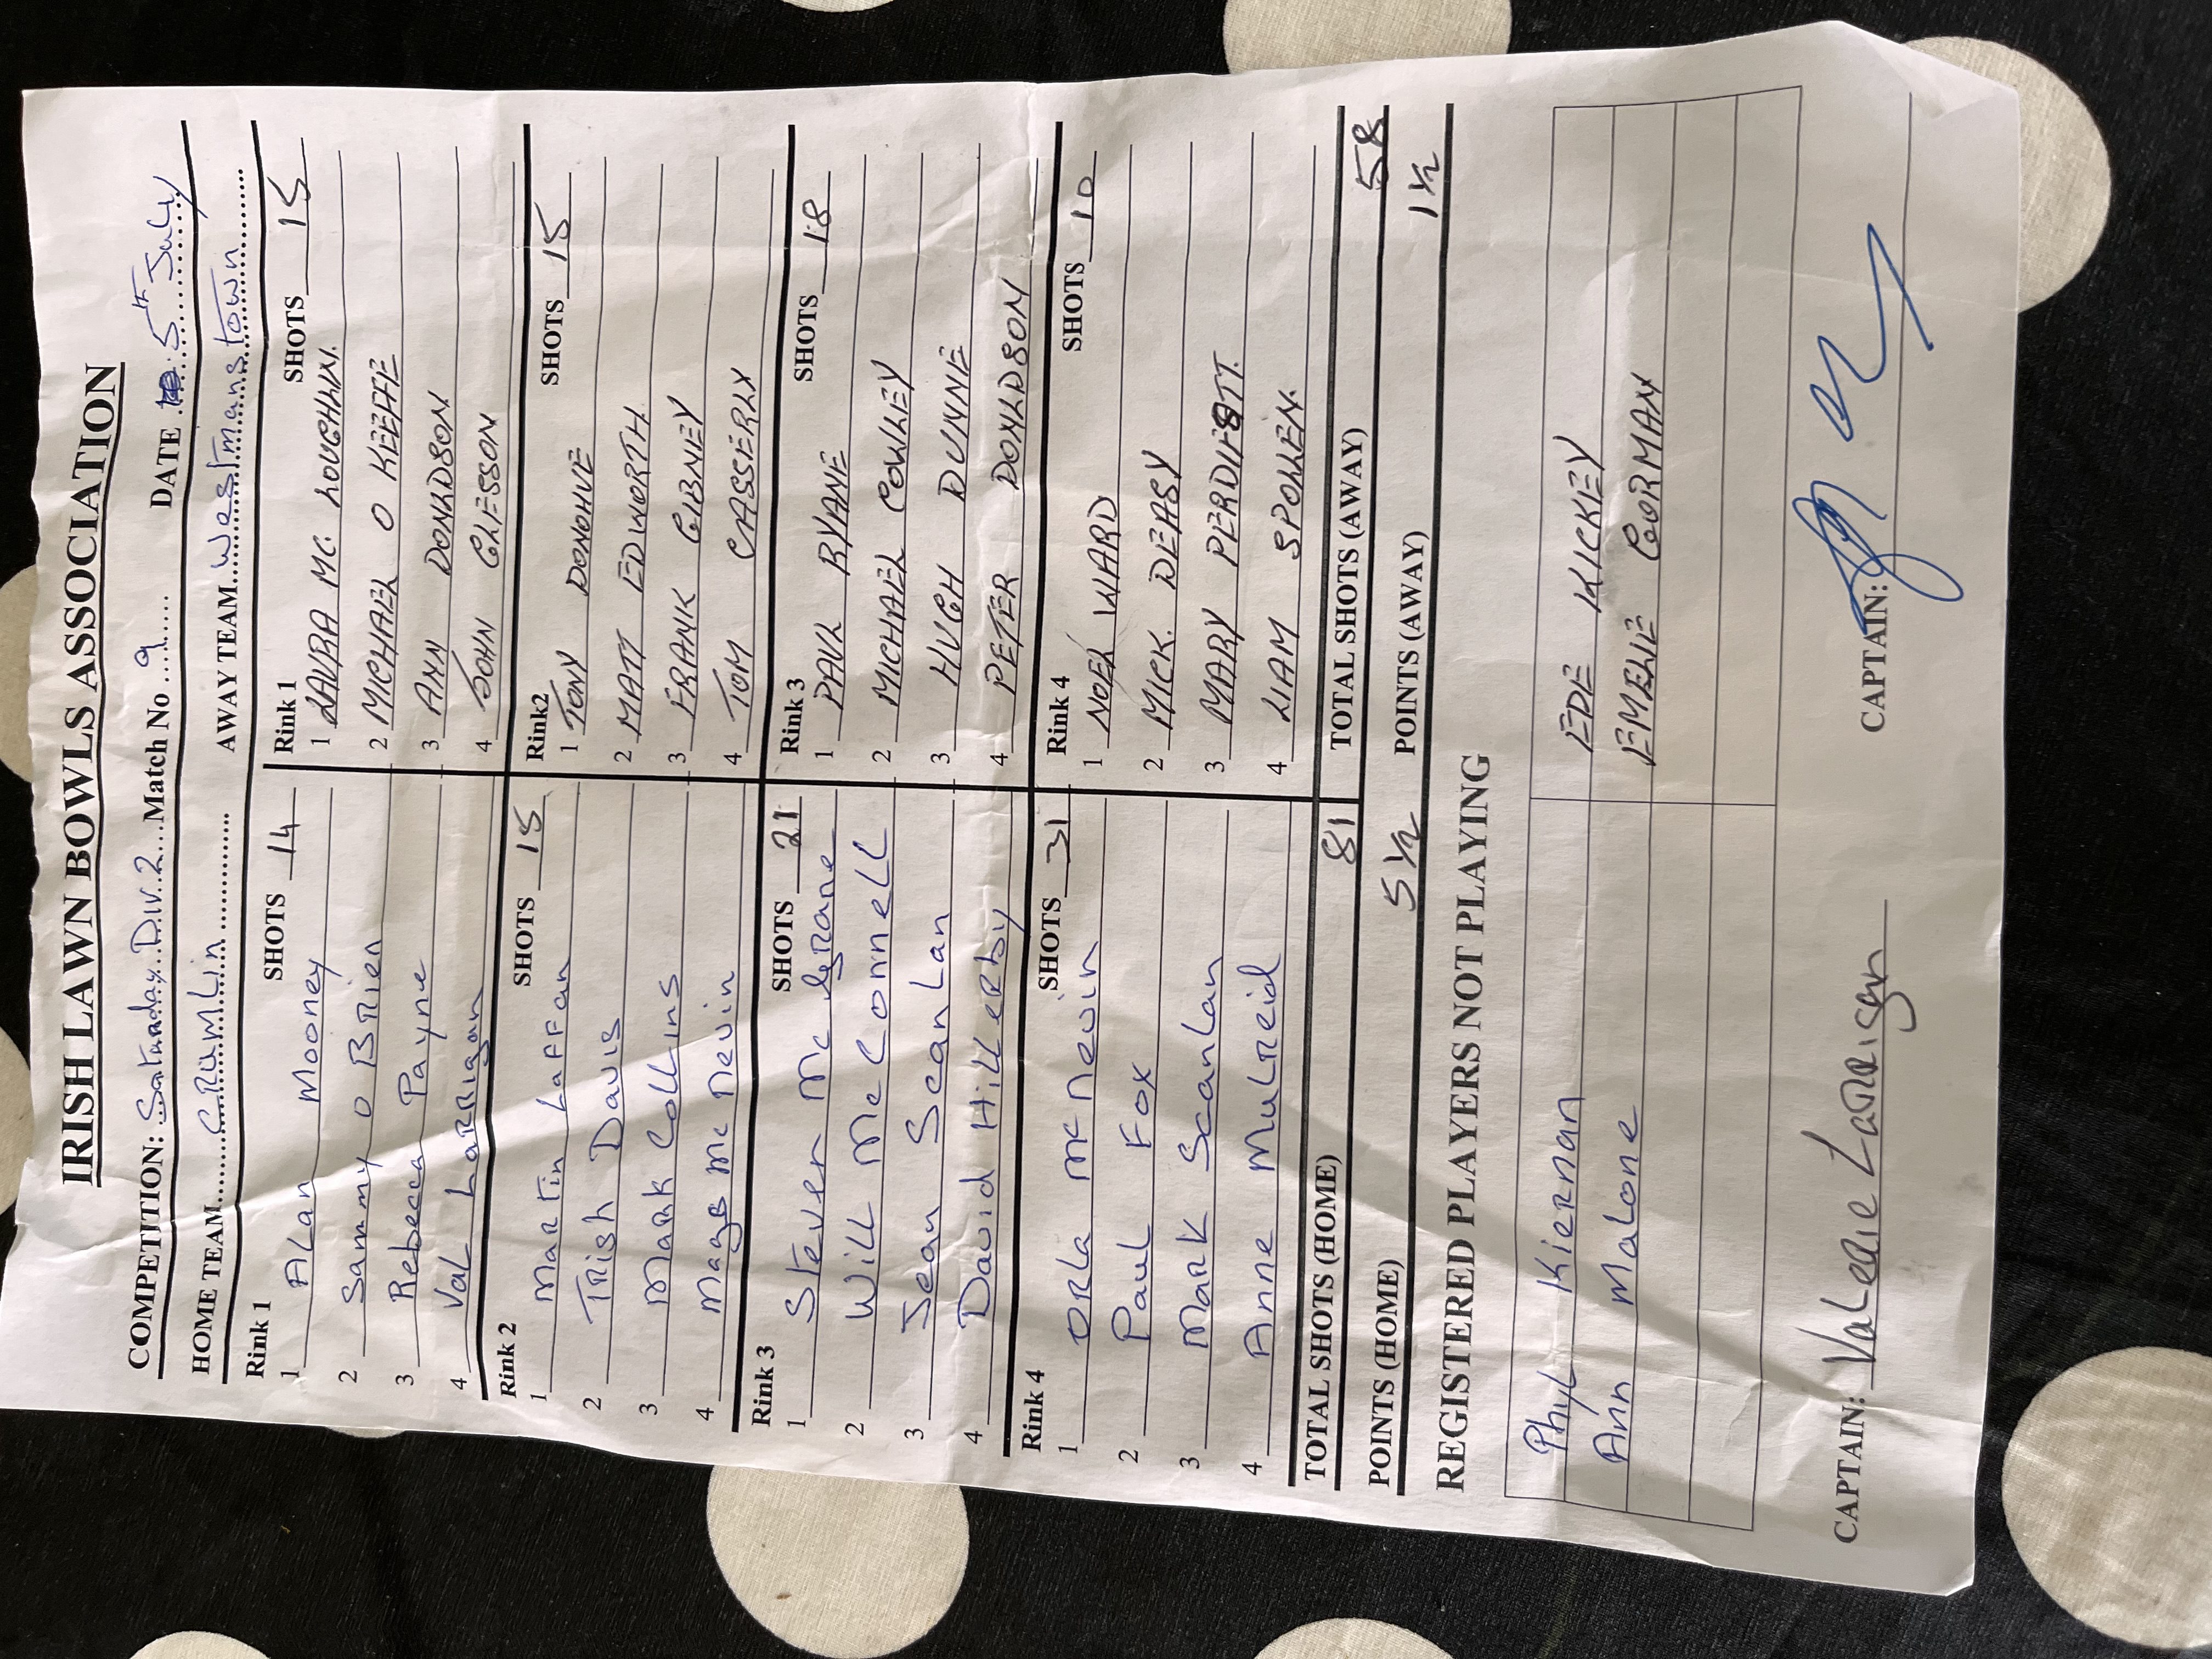 IRISH LAWN BOWLS ASSOCIATION
COMPETITION: Saturday Div. 2 Match No 9 DATE 5th July
HOME TEAM CRUMLIN AWAY TEAM Westmanstown
Rink 1 SHOTS 14 Rink 1 SHOTS 15
1 ALan Mooney 1 LAURA MC. LOUGHLIN.
2 Sammy O BRien 2 MICHAEL O KEEFFE
3 Rebecca Payne 3 ANN DONALDSON
4 VaL LaRRigan 4 JOHN GLESSON
Rink 2 SHOTS 15 Rink2 SHOTS 15
1 MaRtin LaFFan 1 TONY DONOHUE
2 TRish Davis 2 MATT EDWORTH
3 MaRK CoLLins 3 FRANK GIBNEY
4 Mags Mc Nevin 4 TOM CASSERLY
Rink 3 SHOTS 21 Rink 3 SHOTS 18
1 Steven Mc GRane 1 PAUL RYANE
2 WiLL Mc ConneLL 2 MICHAEL COWLEY
3 Sean ScanLan 3 HUGH DUNNE
4 David HiLLeRby 4 PETER DONALDSON
Rink 4 SHOTS 31 Rink 4 SHOTS 10
1 ORLa Mc Nevin 1 NOEL WARD
2 PauL Fox 2 MICK. DEASY
3 MaRK ScanLan 3 MARY
4 Anne MuLReid 4 LIAM SPOLLEN.
TOTAL SHOTS (HOME) 81 TOTAL SHOTS (AWAY) 58
POINTS (HOME) 5 ½ POINTS (AWAY) 1 ½
REGISTERED PLAYERS NOT PLAYING
PhyL KieRnan EDE HICKEY
Ann MaLone EMELIE GORMAN
CAPTAIN: VaLeRie LaRRigan CAPTAIN: